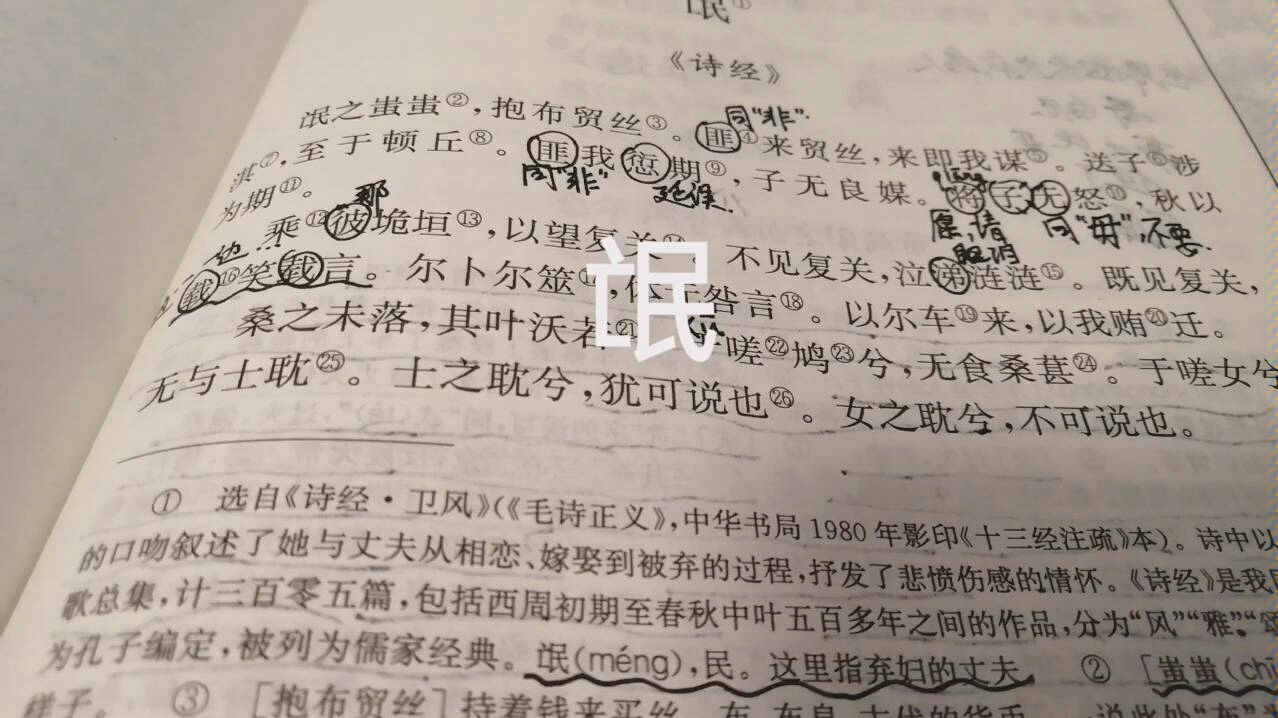 氓①
《诗经》
氓之蚩蚩②，抱布贸丝③。匪④来贸丝，来即我谋⑤。送子⑥涉
同“非”.
淇⑦，至于顿丘⑧。匪我愆期⑨，子无良媒。将子无怒⑩，秋以
同“非” 延误. 愿，请 同“毋”，不要.
为期⑪。
那
乘⑫彼垝垣⑬，以望复关。不见复关，泣涕涟涟⑮。既见复关，
眼泪
载⑯笑载言。尔卜尔筮，咎言⑱。以尔车⑲来，以我贿⑳迁。
氓
桑之未落，其叶沃若㉑。嗟㉒鸠㉓兮，无食桑葚㉔。于嗟女兮
无与士耽㉕。士之耽兮，犹可说也㉖。女之耽兮，不可说也。
① 选自《诗经·卫风》（《毛诗正义》，中华书局1980年影印《十三经注疏》本）。诗中以
的口吻叙述了她与丈夫从相恋、嫁娶到被弃的过程，抒发了悲愤伤感的情怀。《诗经》是我
歌总集，计三百零五篇，包括西周初期至春秋中叶五百多年之间的作品，分为“风”“雅”“颂
为孔子编定，被列为儒家经典。氓（méng），民。这里指弃妇的丈夫 ② ［蚩蚩（chī
样子。 ③ ［抱布贸丝］持着钱来买丝